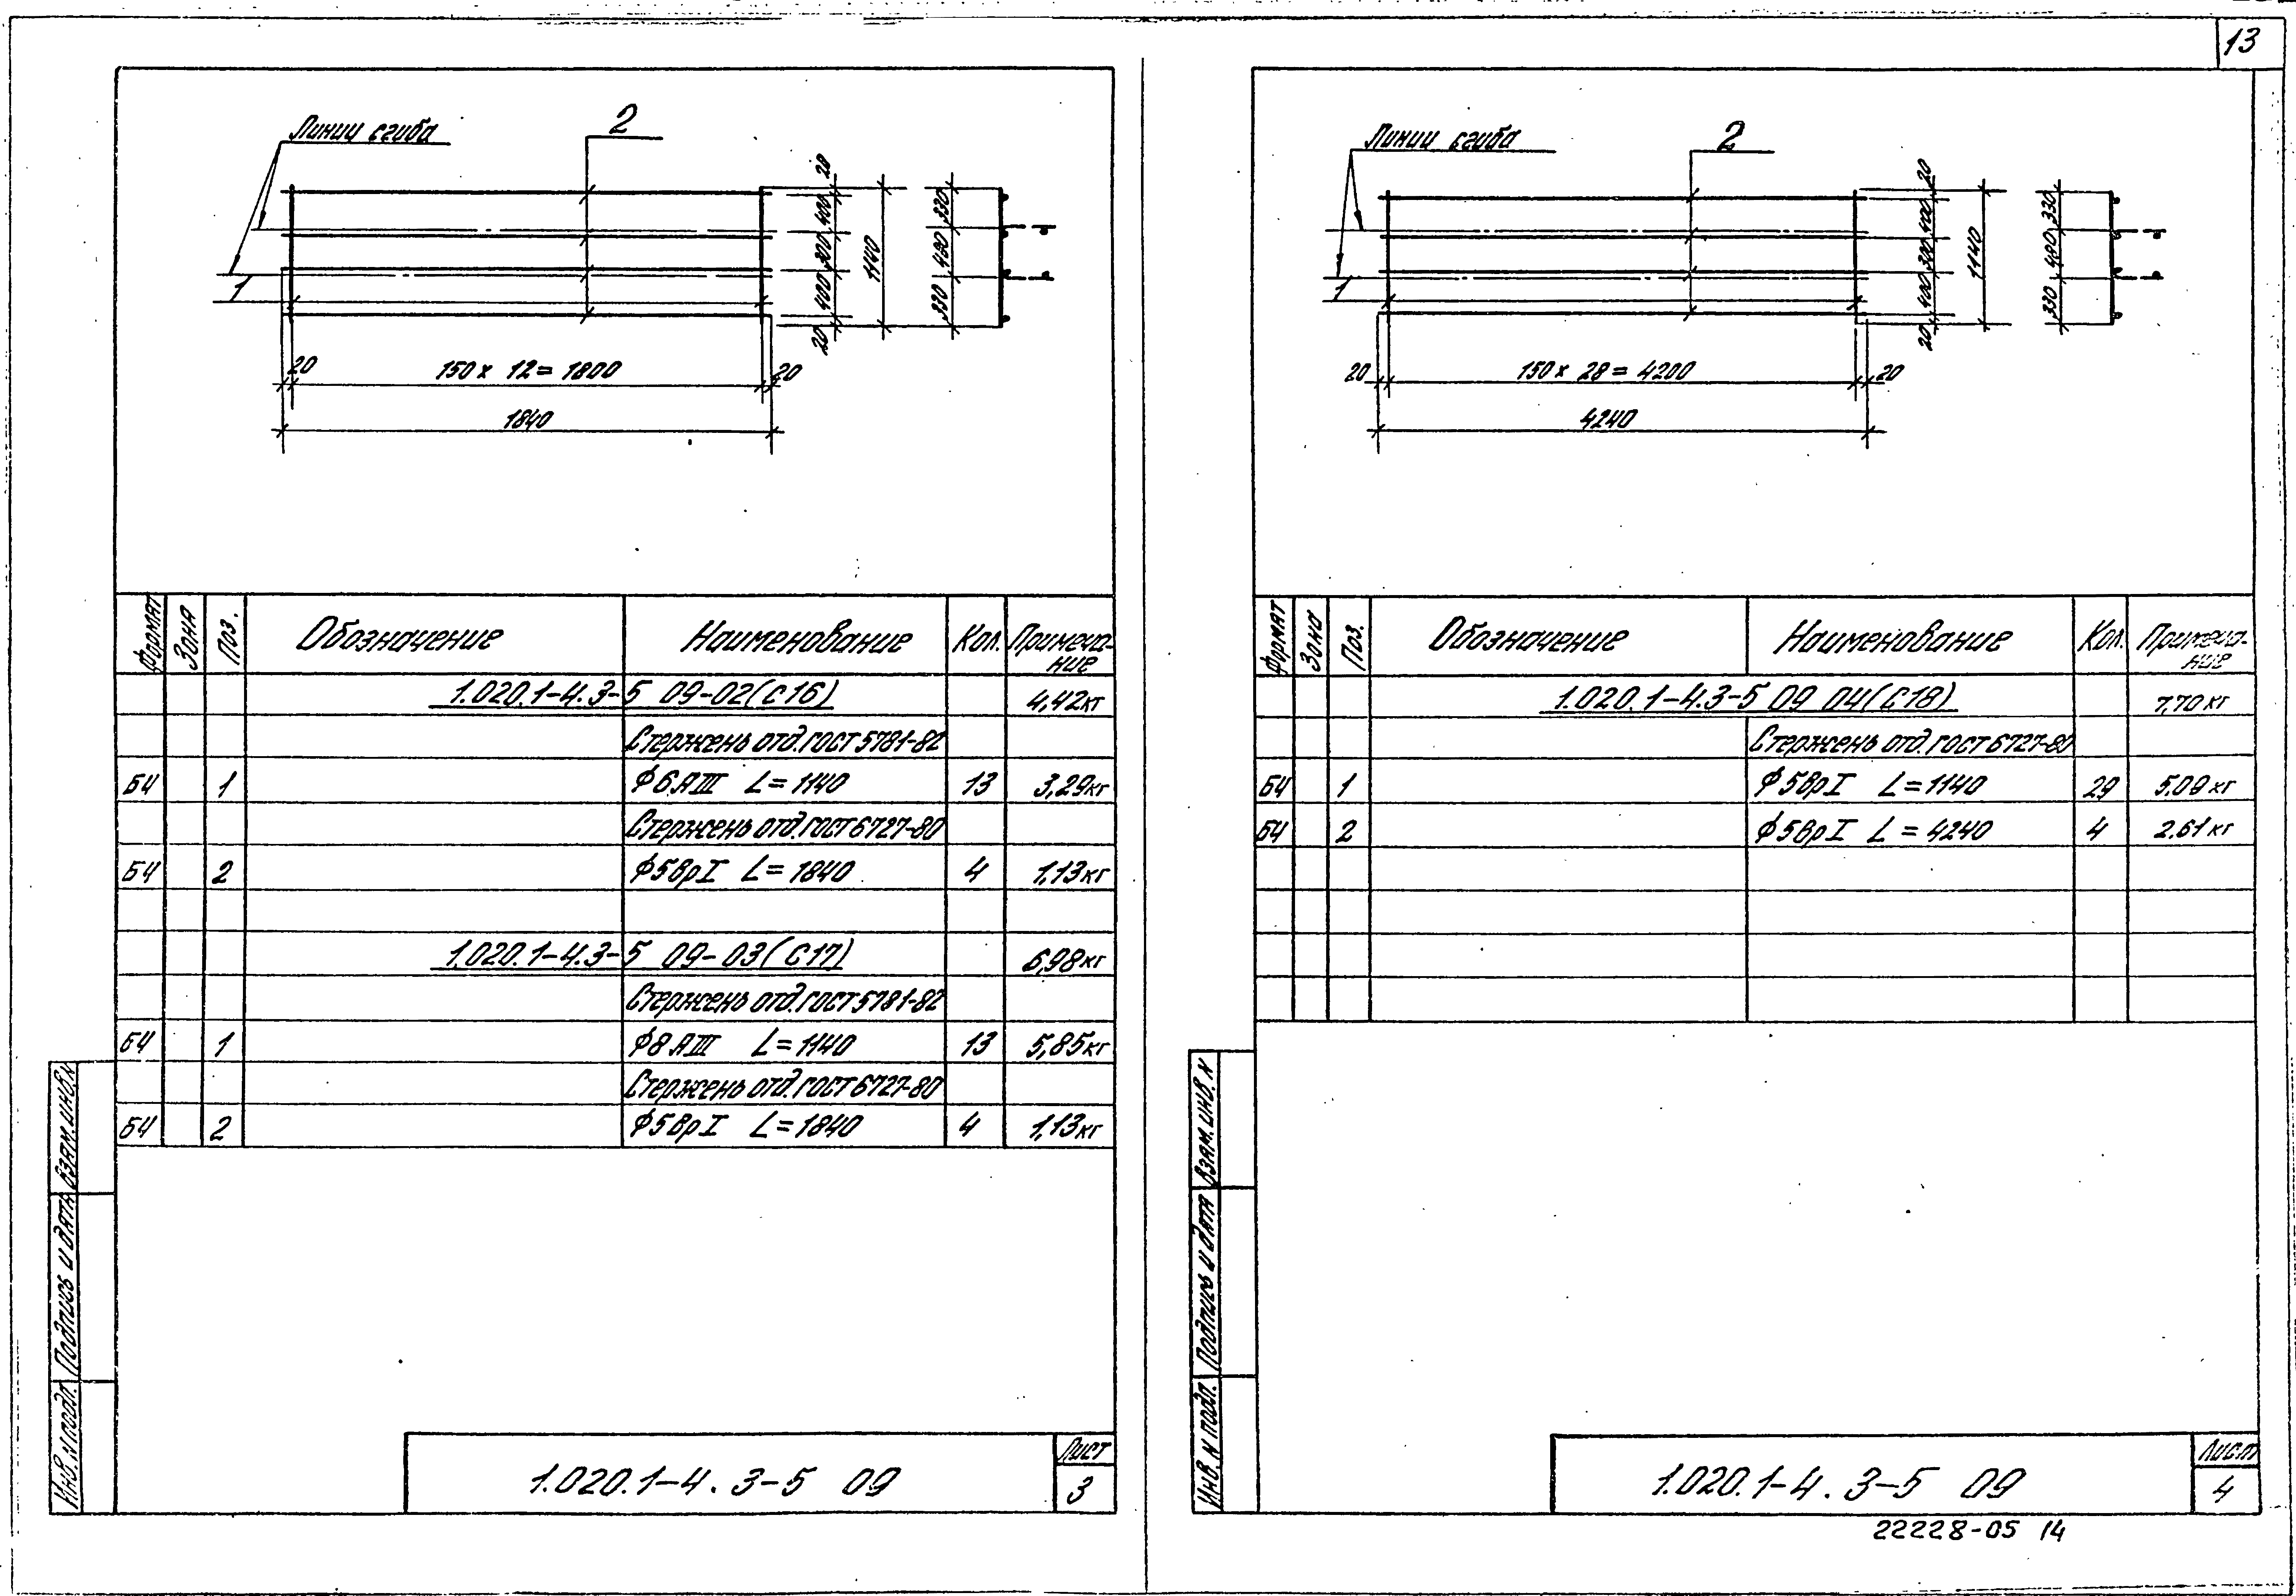 13
Линии сгиба
2
1
28
400
300
400
20
1140
330
480
330
20
150 х 12 = 1800
20
1840
Формат
Зона
Поз.
Обозначение
Наименование
Кол.
Примеча-
ние
1.020.1-4.3-5 09-02 (С16) 4,42кг
Стержень отд. ГОСТ 5781-82
БЧ 1 Ф6АIII L=1140 13 3,29кг
Стержень отд. ГОСТ 6727-80
БЧ 2 Ф5ВрI L=1840 4 1,13кг
1.020.1-4.3-5 09-03 (С17) 6,98кг
Стержень отд. ГОСТ 5781-82
БЧ 1 Ф8АIII L=1140 13 5,85кг
Стержень отд. ГОСТ 6727-80
БЧ 2 Ф5ВрI L=1840 4 1,13кг
Взам. инв. N
Подпись и дата
Инв. N подл.
1.020.1-4.3-5 09
Лист
3
Линии сгиба
2
1
20
400
300
400
20
1140
330
480
330
20
150 х 28 = 4200
20
4240
Формат
Зона
Поз.
Обозначение
Наименование
Кол.
Примеча-
ние
1.020.1-4.3-5 09 04 (С18) 7,70 кг
Стержень отд. ГОСТ 6727-80
БЧ 1 Ф5ВрI L=1140 29 5.09 кг
БЧ 2 Ф5ВрI L=4240 4 2.61 кг
Взам. инв. N
Подпись и дата
Инв. N подл.
1.020.1-4.3-5 09
Лист
4
22228-05 14